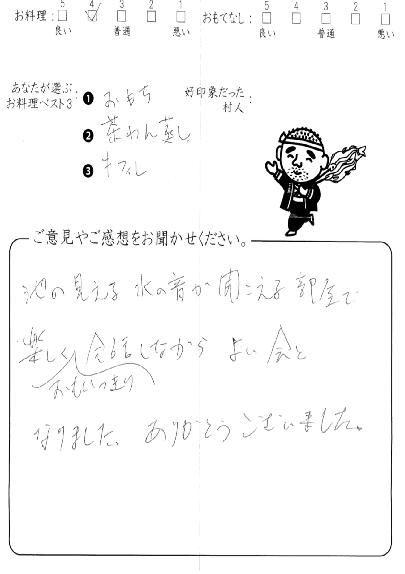 お料理: 5 4 3 2 1 おもてなし: 5 4 3 2 1
良い 普通 悪い 良い 普通 悪い
あなたが選ぶ
お料理ベスト3:
❶ おもち
❷ 茶わん蒸し
❸ 牛フィレ
好印象だった
村人:
ご意見やご感想をお聞かせください。
池の見える 水の音が 聞こえる 部屋で
楽しく 会話しながら よい 会と
おもいっきり
なりました、ありがとうございました。